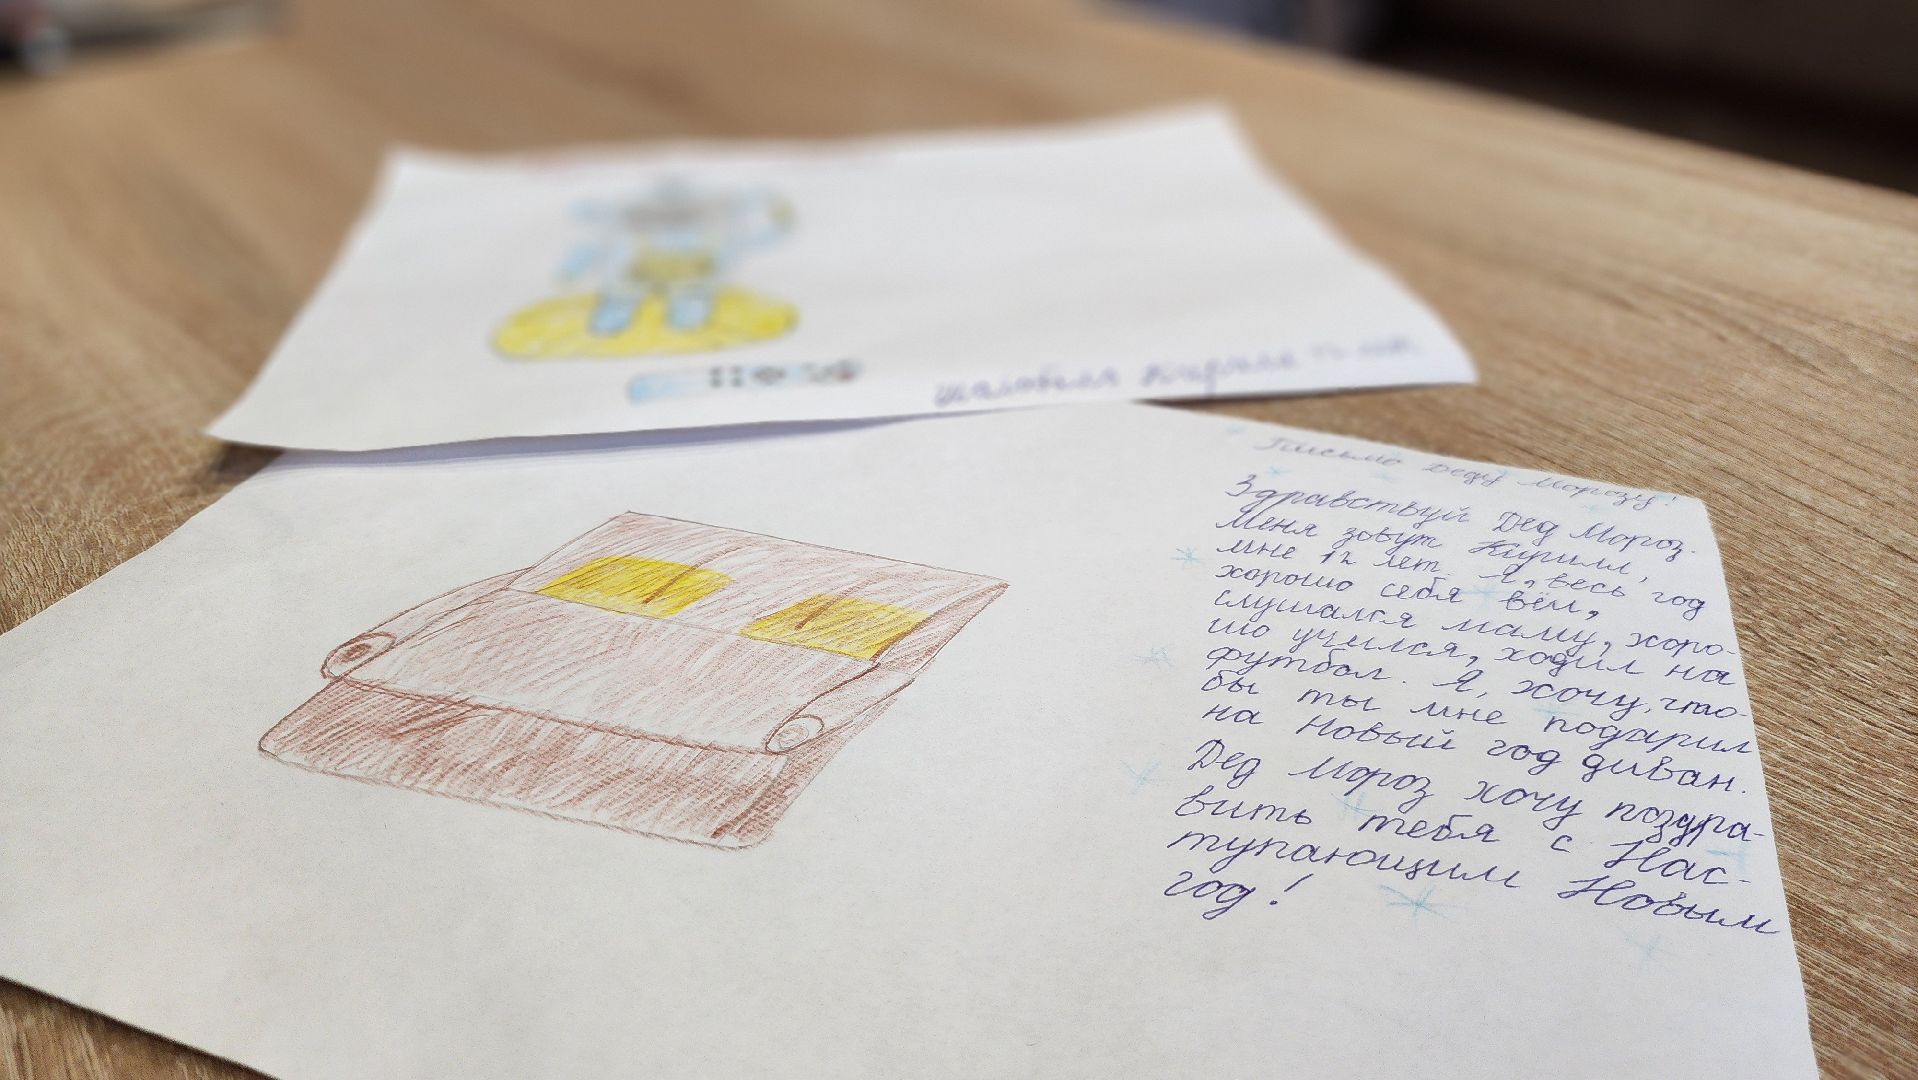 Письмо Деду Морозу!
Здравствуй Дед Мороз.
Меня зовут Кирилл,
мне 12 лет. Я, весь год
хорошо себя вёл,
слушался маму, хоро-
шо учился, ходил на
футбол. Я, хочу, что-
бы ты мне подарил
на Новый год диван.
Дед Мороз хочу поздра-
вить тебя с Нас-
тупающим Новым
год!